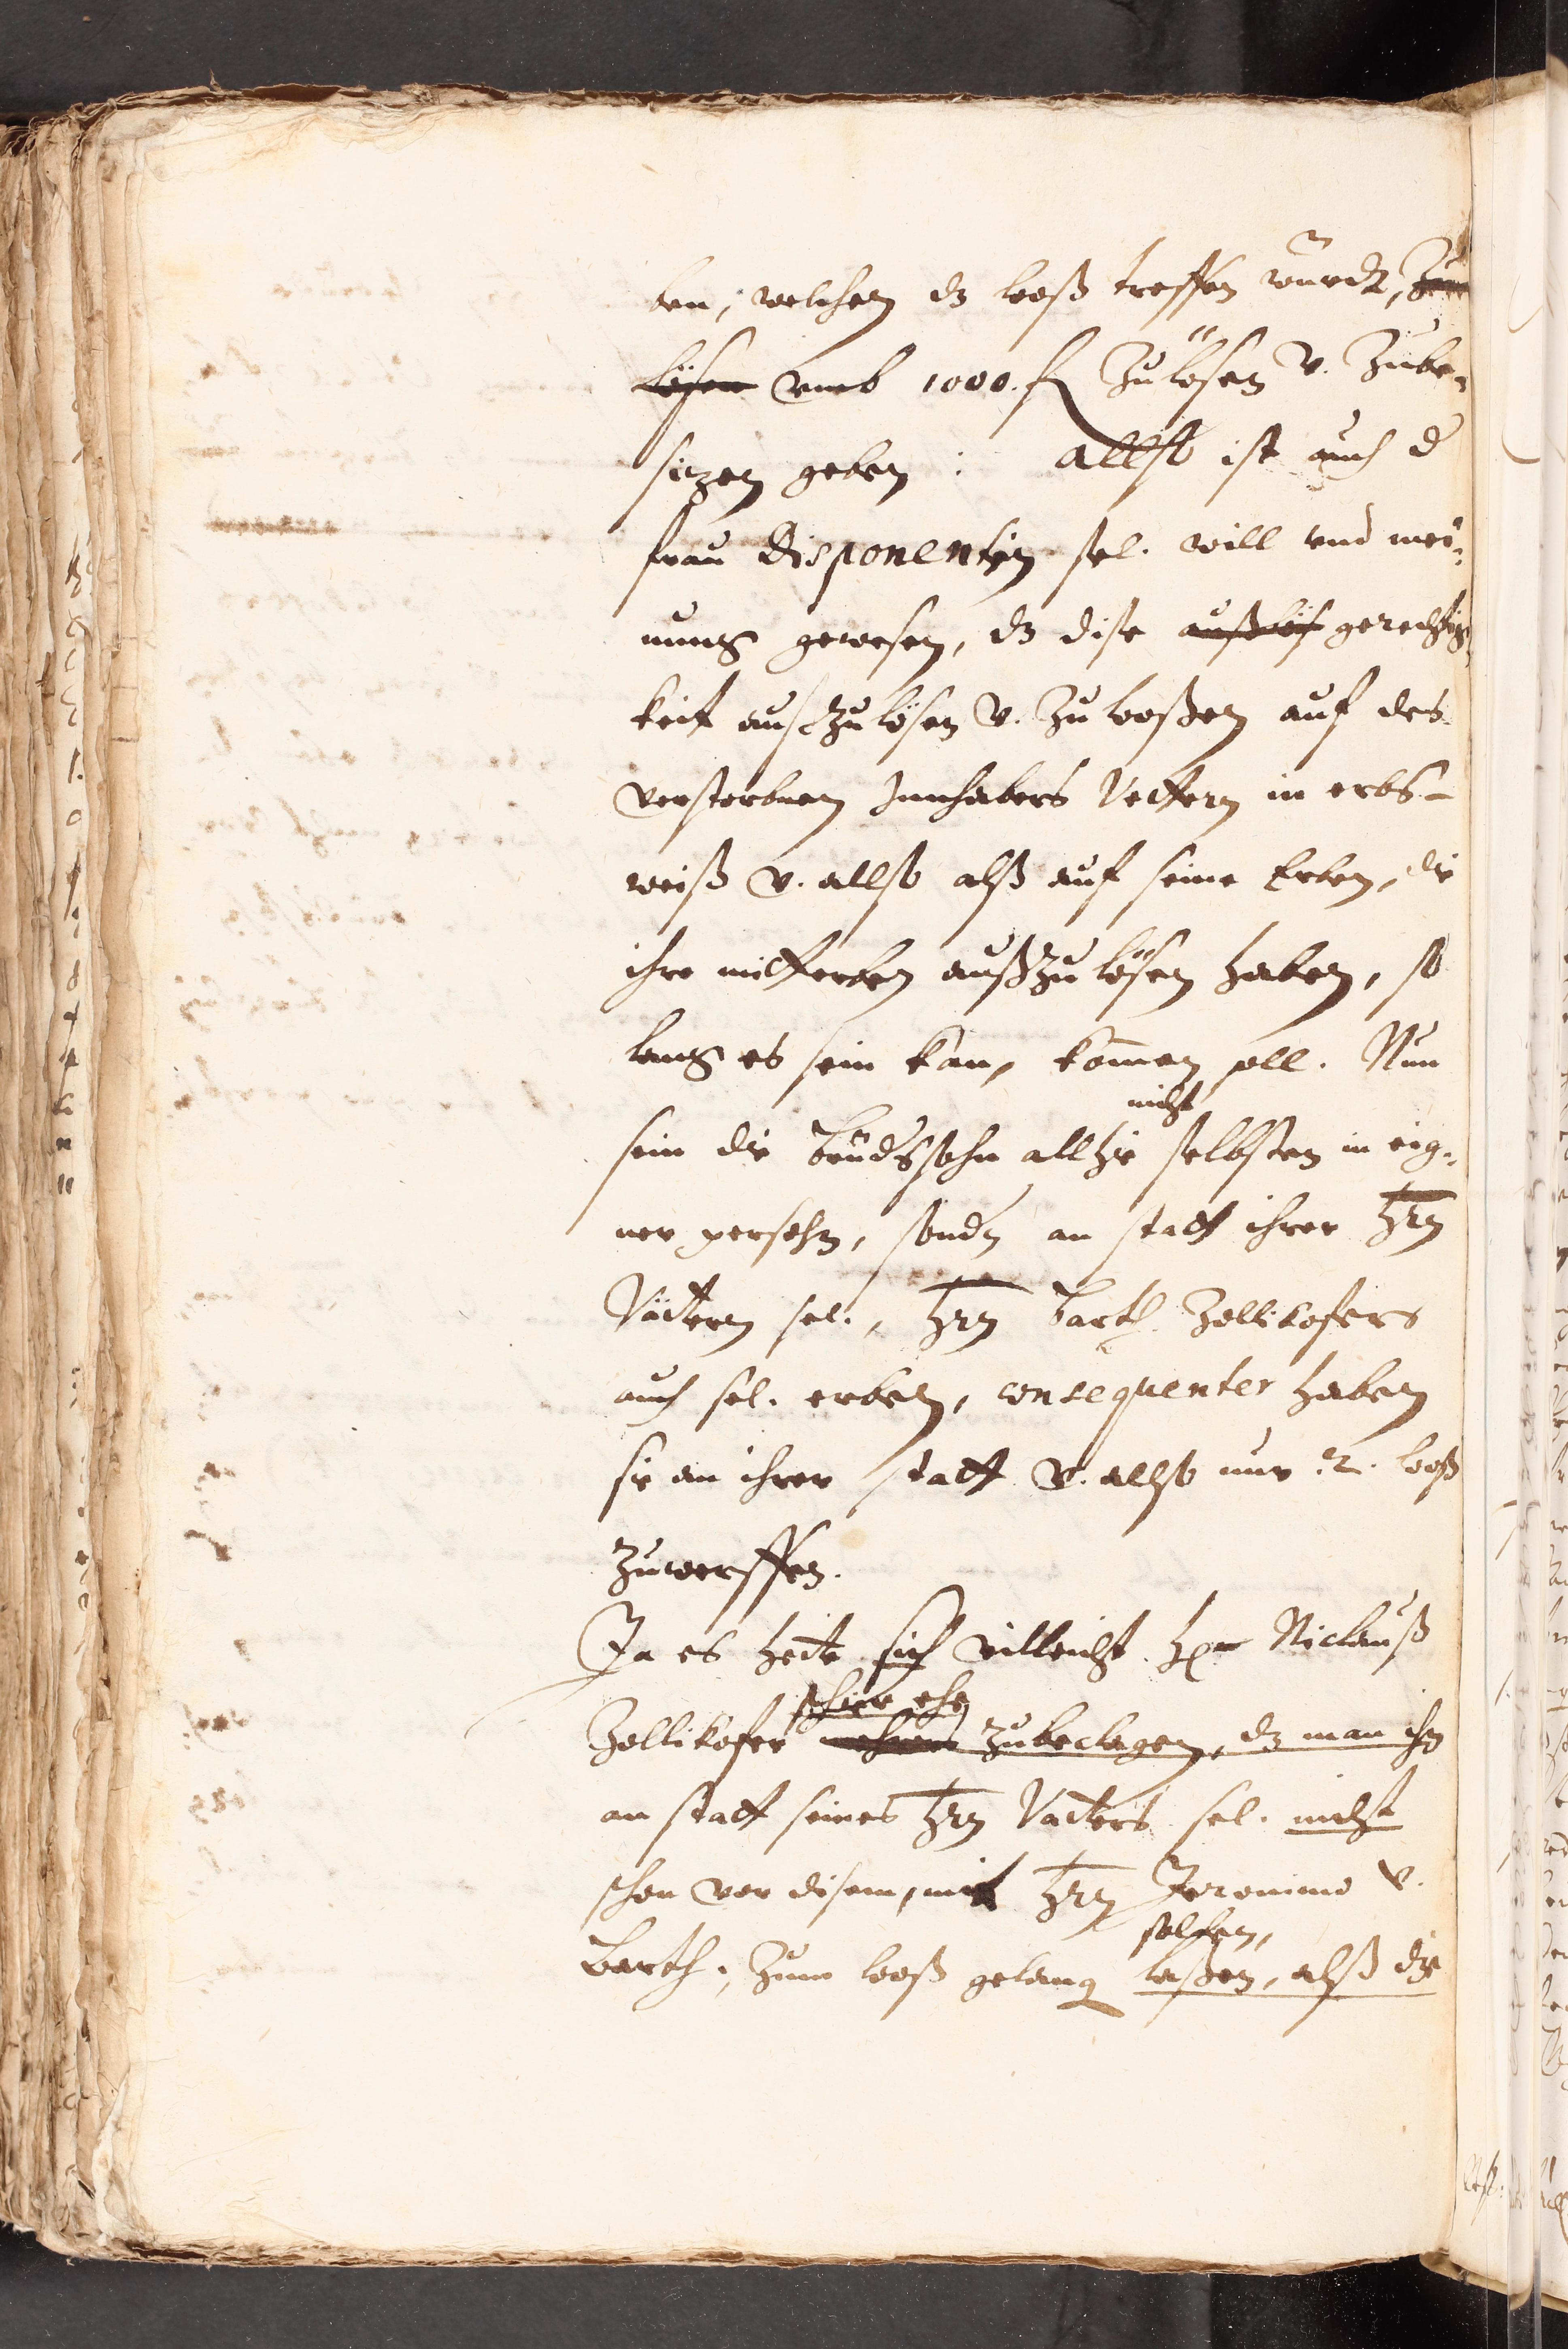 ben, welchen dz looß treffen wurde, zu
lösen umb 1000. fl zu lösen v. zube-
sizen geben: allso ist auch d
frau disponentin sel. will und mei-
nung gewesen, dz dise außlös gerechtig-
keit auszulösen v. zu looßen auf des
verstorbnen Innhabers Vettern in erbs-
weiß v. allso alß auf seine Erben, die
ihre mitterben außzulösen haben, so
lang es sein kan, komen soll. Nun
nicht
sein die brudssohn allhie selbsten in eig-
ner persohn, sondn an statt ihrer Hrn
Vättern sel., Hrn Barth. Zollikofers
auch sel. erben, consequenter haben
sie an ihrer statt v. allso nur .2. looß
zuwerffen.
Ja es hette sich villeicht Hr Niclauß
schier ehe
Zollikofer mehrers zubeclagen, dz man ihn
an statt seines Hrn Vatters sel. nicht
schon vor disem, mit Hrn Jeronimo v.
sollen,
Barth., zum looß gelang laßen, alß die